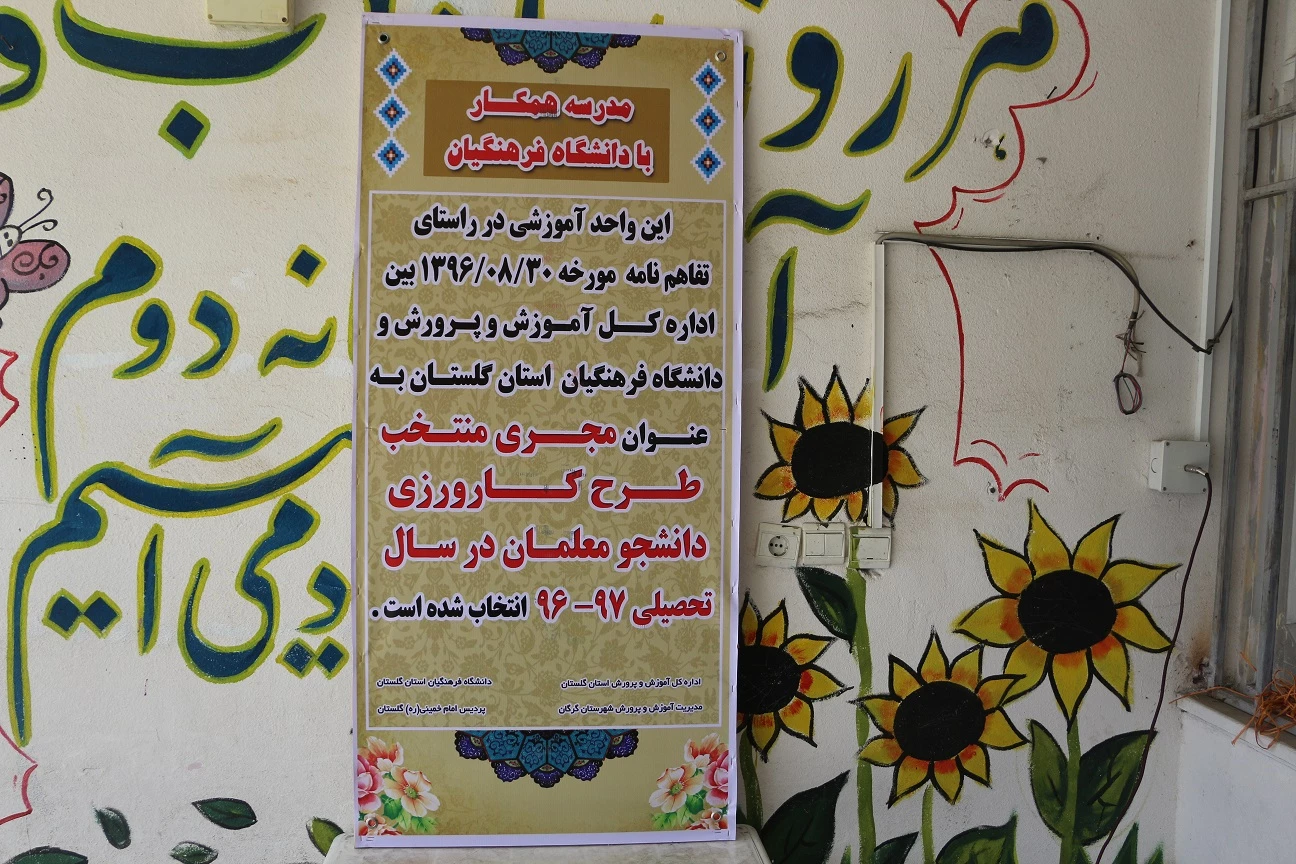 مدرسه همکار
با دانشگاه فرهنگیان
این واحد آموزشی در راستای
تفاهم نامه مورخه ۱۳۹۶/۰۸/۳۰ بین
اداره کل آموزش و پرورش و
دانشگاه فرهنگیان استان گلستان به
عنوان مجری منتخب
طرح کارورزی
دانشجو معلمان در سال
تحصیلی ۹۷- ۹۶ انتخاب شده است.
اداره کل آموزش و پرورش استان گلستان
مدیریت آموزش و پرورش شهرستان گرگان
دانشگاه فرهنگیان استان گلستان
پردیس امام خمینی(ره) گلستان
دوم